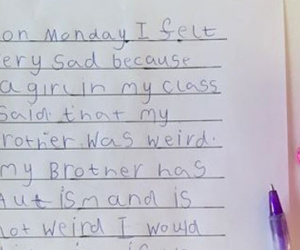 on Monday I felt
ery sad because
a girl in my class
said that my
rother was weird.
my Brother has
Autism and is
not weird I would